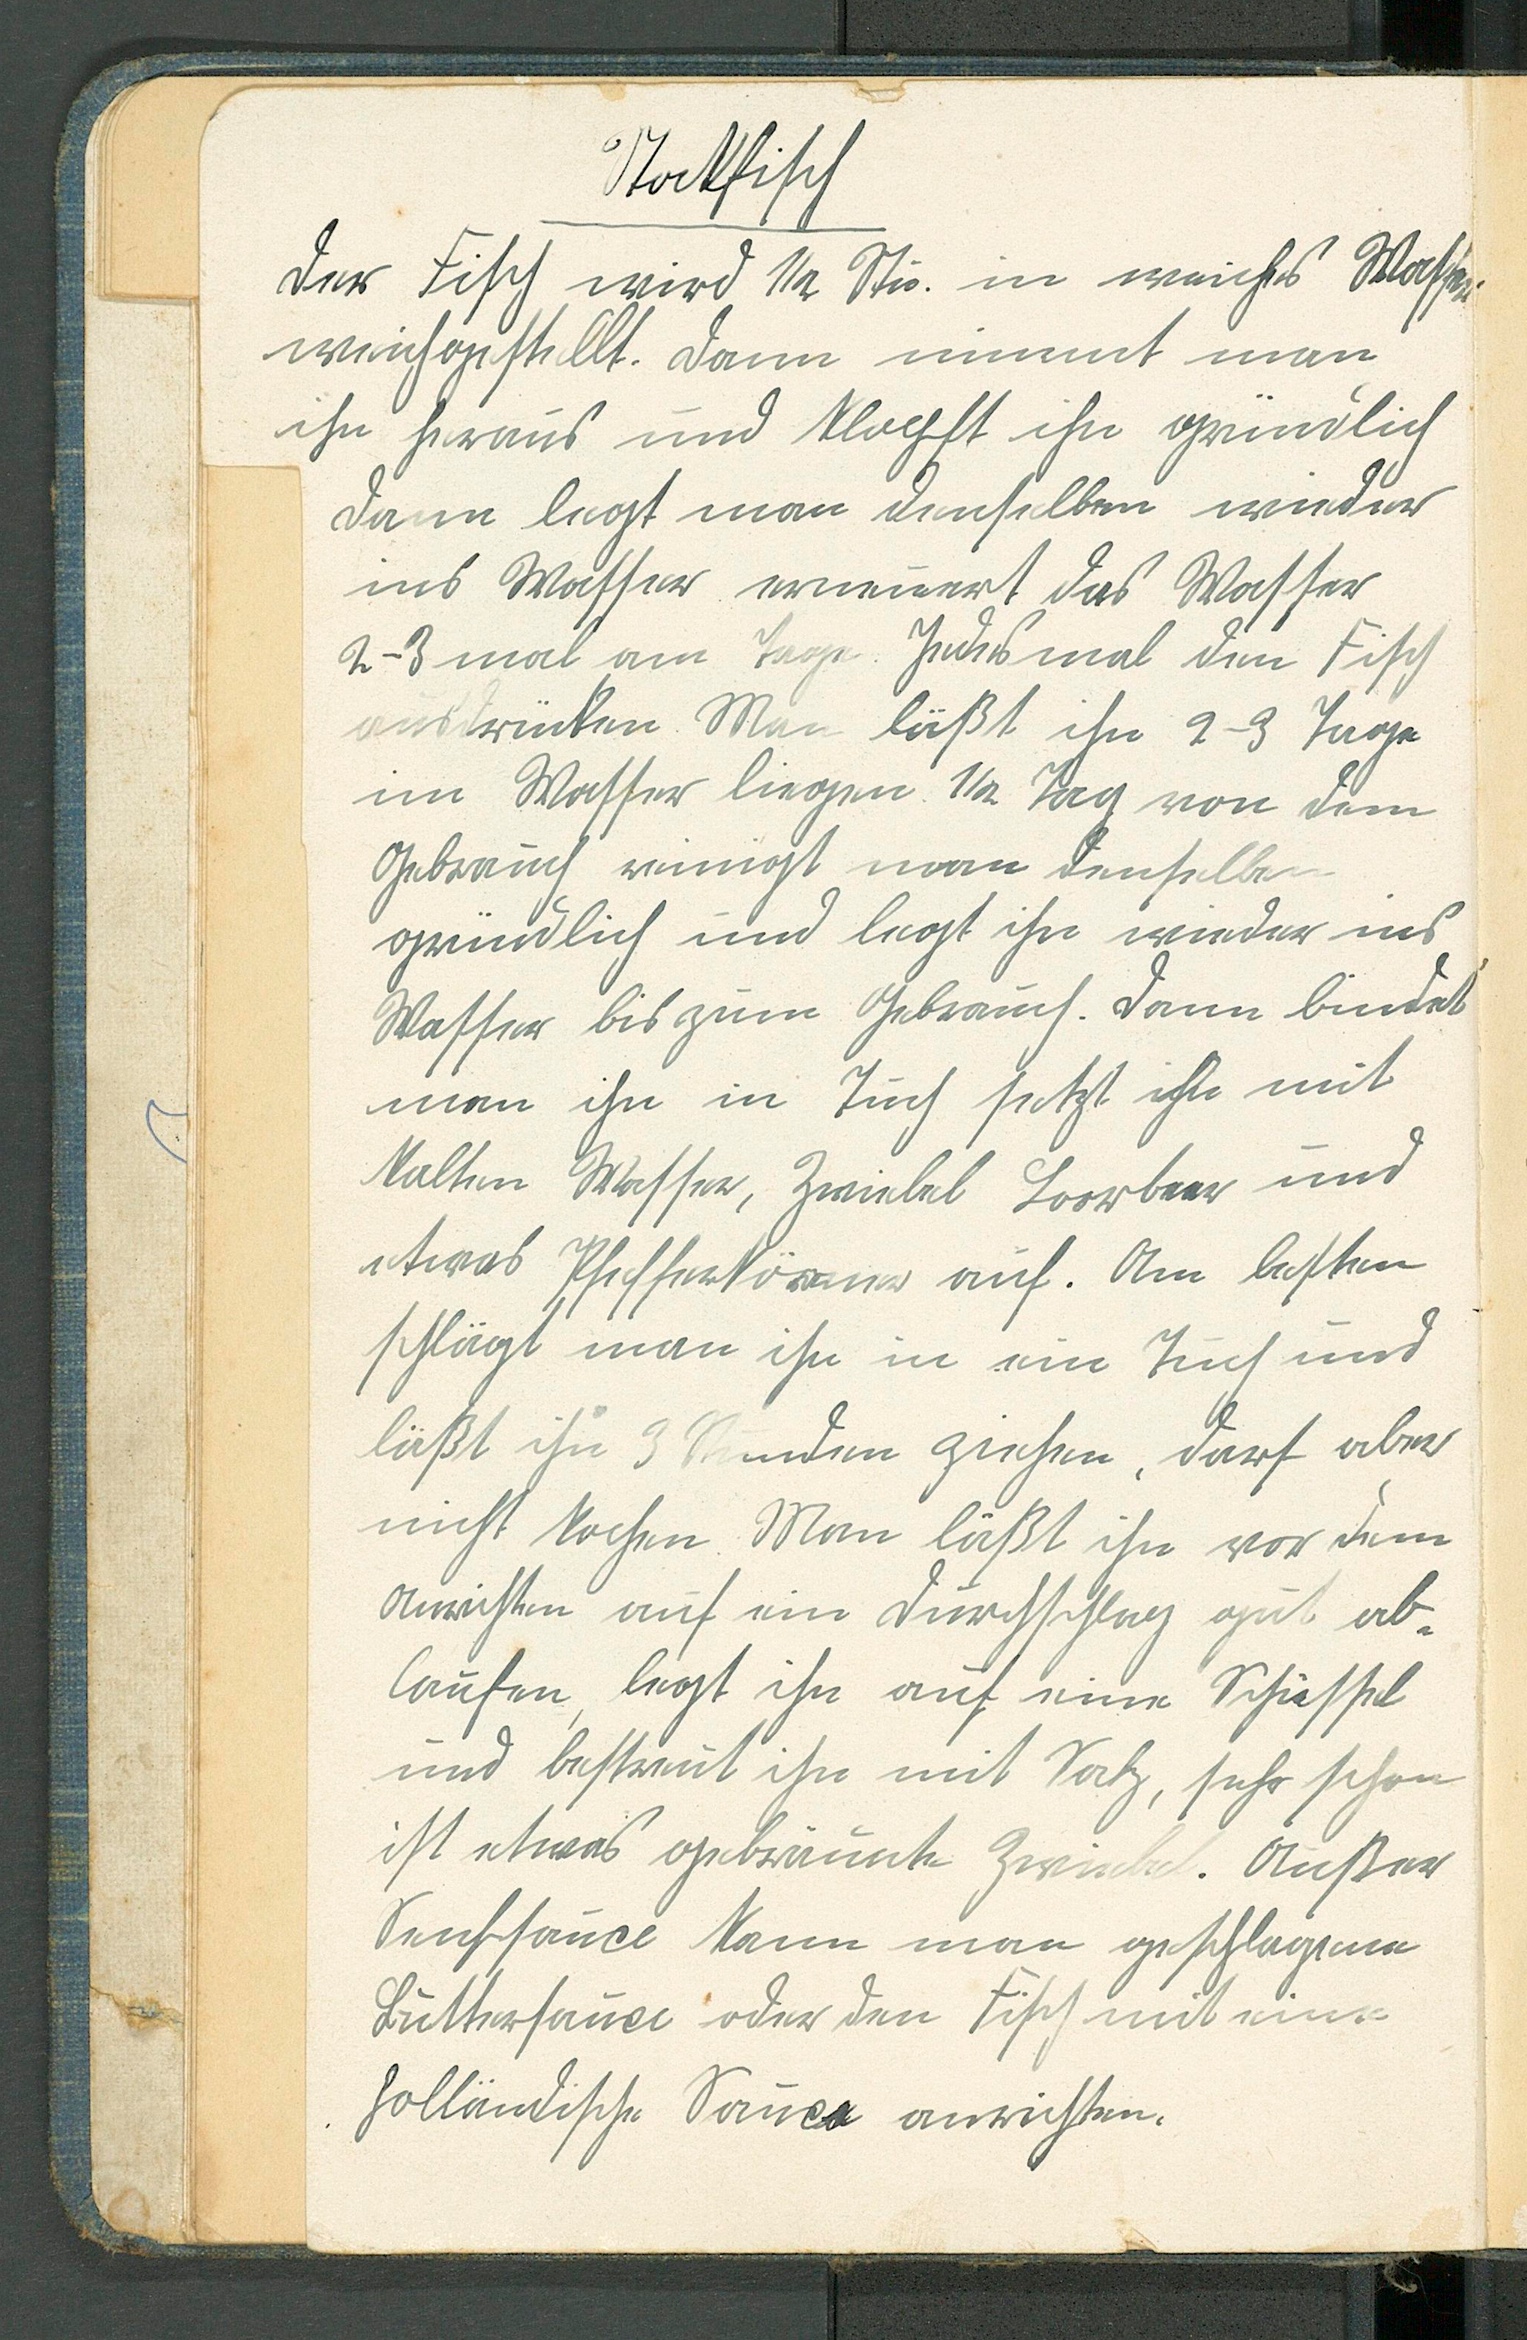 Stockfisch
Der Fisch wird 1/2 Stu. in weiches Wasser
weichgestellt. Dann nimmt man
ihn heraus und klopft ihn gründlich
dann legt man denselben wieder
ins Wasser erneuert das Wasser
2-3 mal am Tage. Jedesmal den Fisch
ausdrücken. Man läßt ihn 2-3 Tage
im Wasser liegen. 1/2 Tag von dem
Gebrauch reinigt man denselben
gründlich und legt ihn wieder ins
Wasser bis zum Gebrauch. Dann bindet
man ihn in Tuch setzt ihn mit
kalten Wasser, Zwiebel Loorbeer und
etwas Pfefferkörner auf. Am besten
schlägt man ihn in ein Tuch und
läßt ihn 3 Stunden ziehen, darf aber
nicht kochen. Man läßt ihn vor dem
Anrichten auf ein Durchschlag gut ab-
laufen, legt ihn auf eine Schüssel
und bestreut ihn mit Salz, sehr schon
ist etwas gebräunte Zwiebel. Außer
Senfsauce kann man geschlagene
Buttersauce oder den Fisch mit eine
holländische Sauce anrichten.